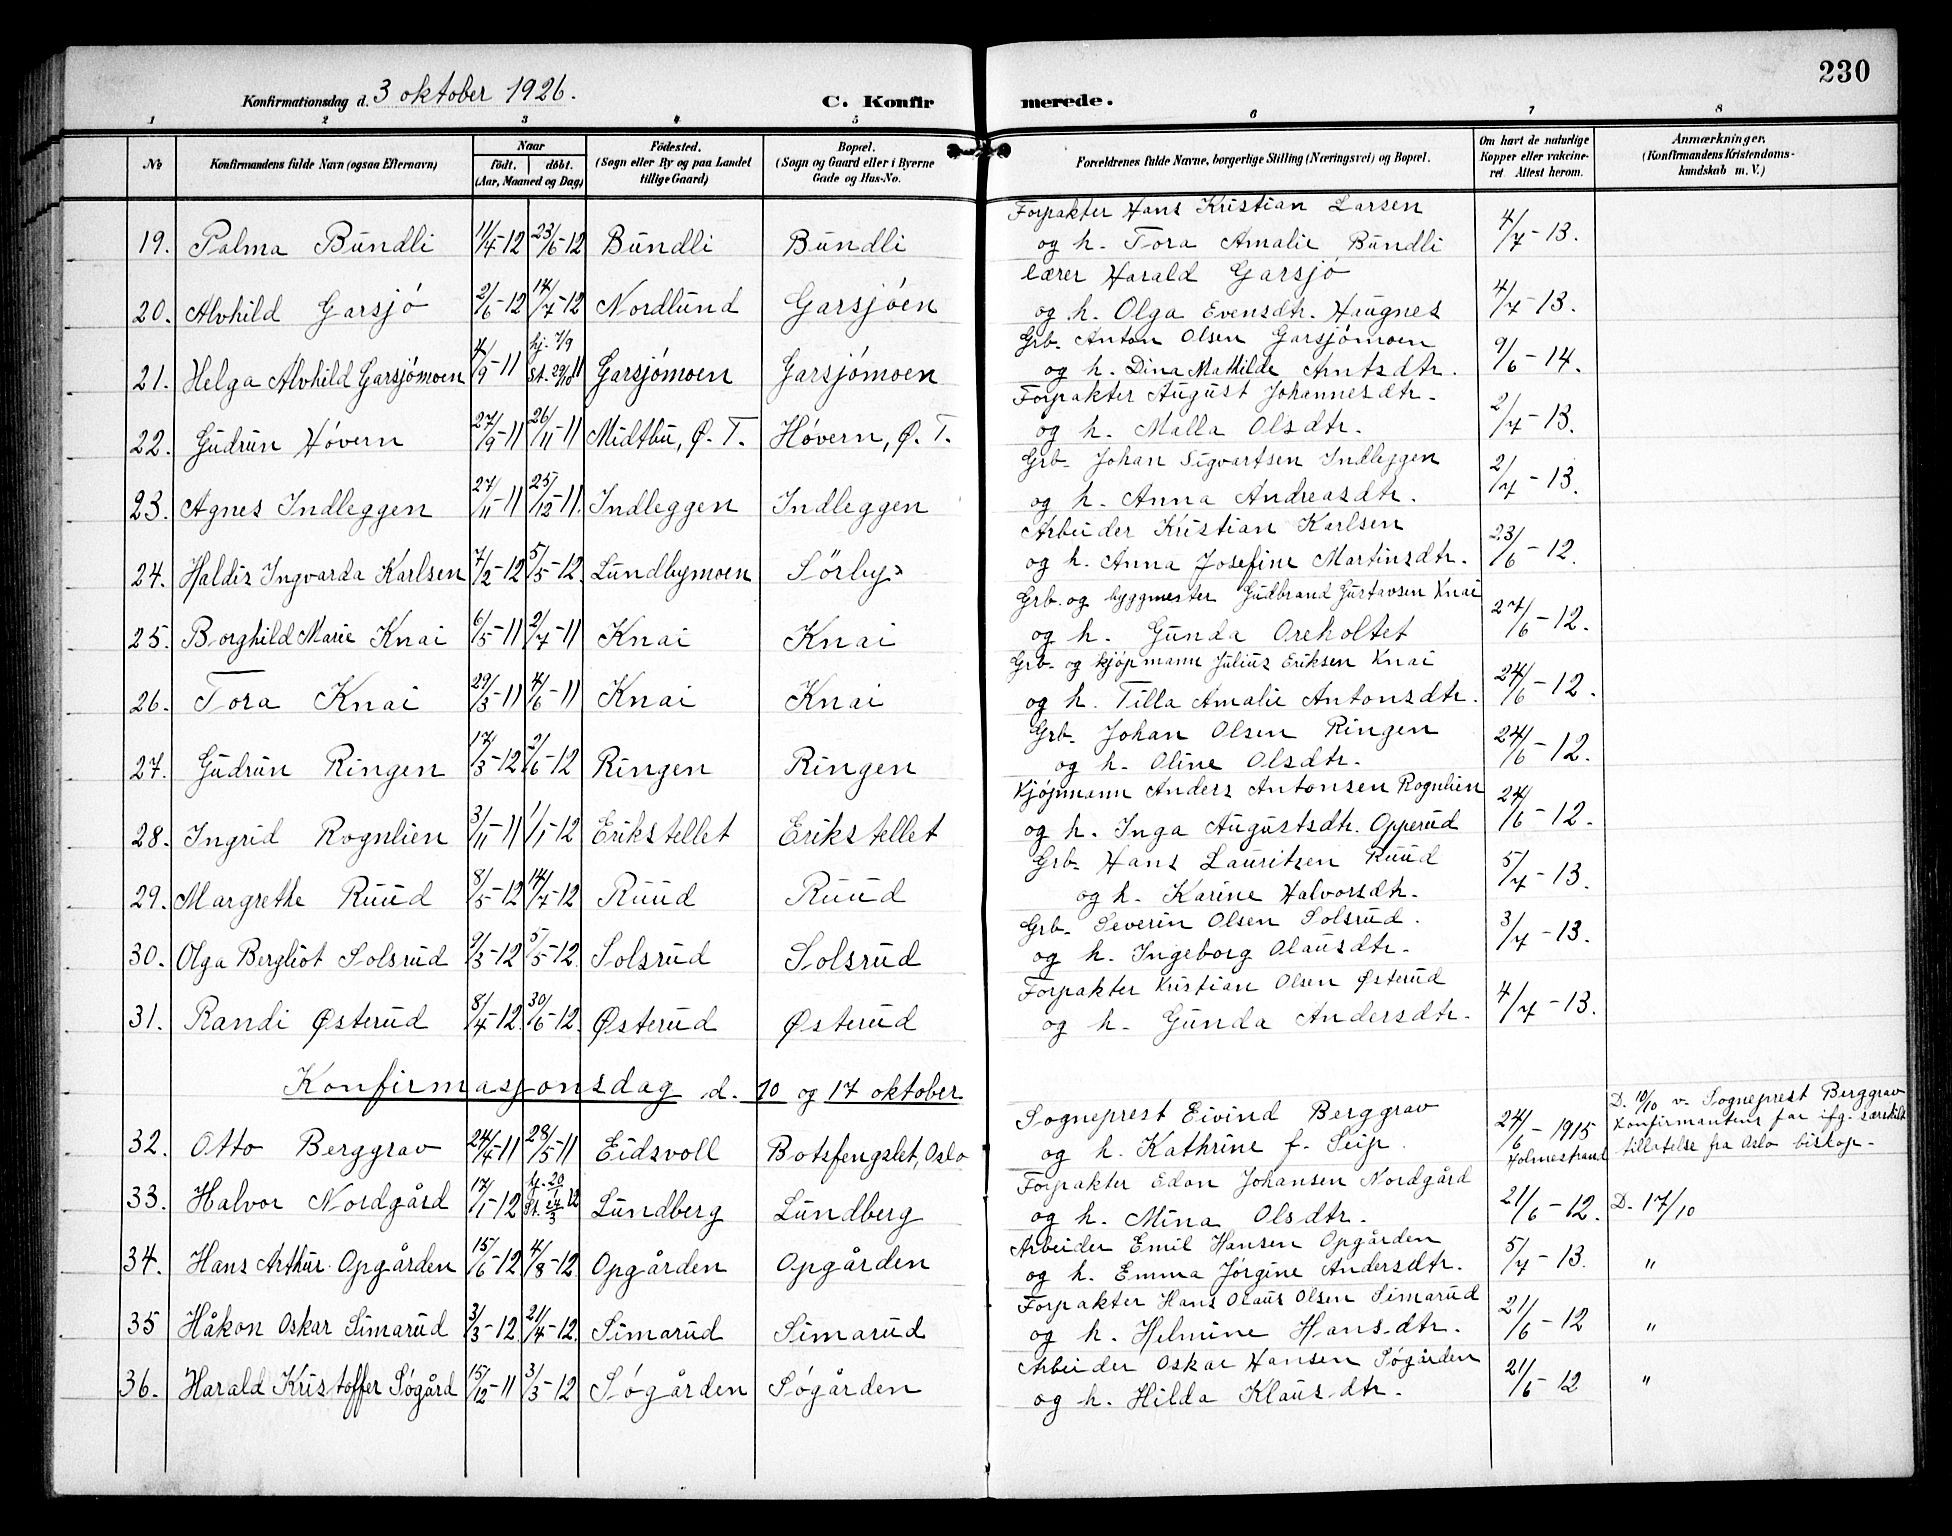 230
Konfirmationsdag d. 3 oktober 1926.
C. Konfirmerede.
1 2 3 4 5 6 7 8
No
Konfirmandens fulde Navn (ogsaa Efternavn)
Naar
født. døbt.
(Aar, Maaned og Dag)
Fødested.
(Sogn eller By og paa Landet
tillige Gaard)
Bopæl.
(Sogn og Gaard eller i Byerne
Gade og Hus-No.
Forældrenes fulde Navne, borgerlige Stilling (Næringsvei) og Bopæl.
Om havt de naturlige
Kopper eller vakcine-
ret. Attest herom.
Anmærkninger.
(Konfirmandens Kristendoms-
kundskab m. V.)
Forpakter Hans Kristian Larsen
19. Palma Bundli 11/4-12 23/6-12 Bundli Bundli og h. Tora Amalie Bundli 4/7-13.
lærer Harald Garsjö
20. Alvhild Garsjö 2/6-12 14/7-12 Nordlund Garsjöen og h. Olga Evensdtr. Haugnes 4/7-13.
hj. 7/9 Grb. Anton Olsen Garsjömoen
21. Helga Alvhild Garsjömoen 4/9-11 St. 29/10 11 Garsjömoen Garsjömoen og h. Dina Mathilde Antsdtr. 9/6-14.
Forpakter August Johannesdtr.
22. Gudrun Hóvern 27/9-11 26/11-11 Midtbu, Ø. T. Hóvern, Ø. T. og h. Malla Olsdtr. 2/7-13.
Grb. Johan Sigvartsen Indleggen
23. Agnes Indleggen 27/11-11 25/12-11. Indleggen Indleggen og h. Anna Andreasdtr. 2/7-13.
Arbeider Kristian Karlsen
24. Haldis Ingvarda Karlsen 7/2-12 5/5-12. Lundbymoen Sörby og h. Anna Josefine Martinsdtr. 23/6-12.
Grb. og byggmester Gudbrand Gustavsen Knai
25. Borghild Marie Knai 6/5-11 2/7-11 Knai Knai og h. Gunda Oreholtet 27/6-12.
Grb. og kjópmann Julius Eriksen Knai
26. Tora Knai 29/3-11 4/6-11 Knai Knai og h. Tilla Amalie Antonsdtr. 24/6-12.
Grb. Johan Olsen Ringen
27. Gudrun Ringen 17/3-12 2/6-12 Ringen Ringen og h. Oline Olsdtr. 24/6-12.
Kjópmann Anders Antonsen Rognlien
28. Ingrid Rognlien 3/11-11 1/1-12 Erikstellet Erikstellet og h. Inga Augustsdtr. Opperud 24/6-12.
Grb. Hans Lauritsen Ruud
29. Margrethe Ruud 8/5-12 14/7-12 Ruud Ruud og h. Karine Halvorsdtr. 5/7-13.
Grb. Severin Olsen Solsrud.
30. Olga Bergliot Solsrud 9/3-12 5/5-12. Solsrud Solsrud og h. Ingeborg Olausdtr. 3/7-13.
Forpakter Kristian Olsen Østerud
31. Randi Østerud 8/4-12. 30/6-12. Østerud Østerud og h. Gunda Andersdtr. 4/7-13.
Konfirmasjonsdag d. 10 og 17 oktober
Sogneprest Eivind Berggrav D. 10/10 v. Sogneprest Berggrav
32. Otto Berggrav 24/4-11 28/5-11 Eidsvoll Botsfengslet, Oslo og h. Kathrine f. Seip. 24/6-1915 Holmestrand Konfirmantens far ifg. særskilt
tillatelse fra Oslo biskop.
hj. 20/1 Forpakter Edon Johansen Nordgård
33. Halvor Nordgård 17/1-12 St. 24/3 12 Lundberg Lundberg og h. Mina Olsdtr. 21/6-12. D. 17/10
Arbeider Emil Hansen Opgården
34. Hans Arthur Opgården 15/6-12 4/8-12. Opgården Opgården og h. Emma Jórgine Andersdtr. 5/7-13. "
Forpakter Hans Olaus Olsen Simarud
35 Håkon Oskar Simarud 3/3-12. 21/4-12. Simarud Simarud og h. Helmine Hansdtr. 21/6-12 "
Arbeider Oskar Hansen Sógården
36. Harald Kristoffer Sógård 15/12-11 3/3-12 Sógården Sógården og h. Hilda Klausdtr. 21/6-12 "